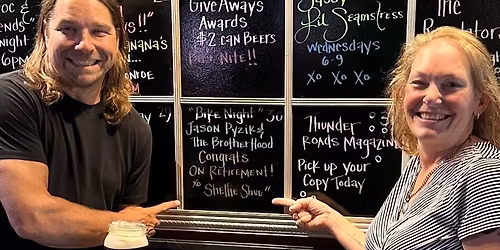 oc &
ends
night
6 pm
!!"
anana's
onide
GiveAways
Awards
$2 can Beers
Nite!!
Lil Seamstress
Wednesdays
6-9
Xo Xo Xo
The
"Bike Night" 30
Jason Pyzik &
The BrotherHood
Congrats
On Retirement!
xo Shellie Shue"
Thunder
Roads Magazine
Pick up your
Copy Today